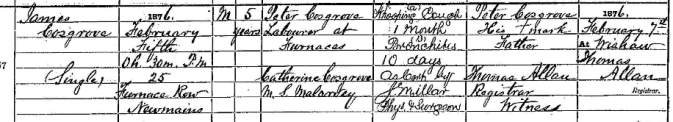 James
Cosgrove
(Single)
1876.
February
Fifth
0h. 30m. P.M.
25
Furnace Row
Newmains
M
5
years
Peter Cosgrove
Labourer at
Furnaces
Catherine Cosgrove
M.S.
Whooping Cough
1 month
Bronchitis
10 days
As Cert by
Millar
Phys & Surgeon
Peter Cosgrove
His + mark
Father
Thomas Allan
Registrar
Witness
1876.
February 7th
At Wishaw
Thomas
Allan
Registrar.